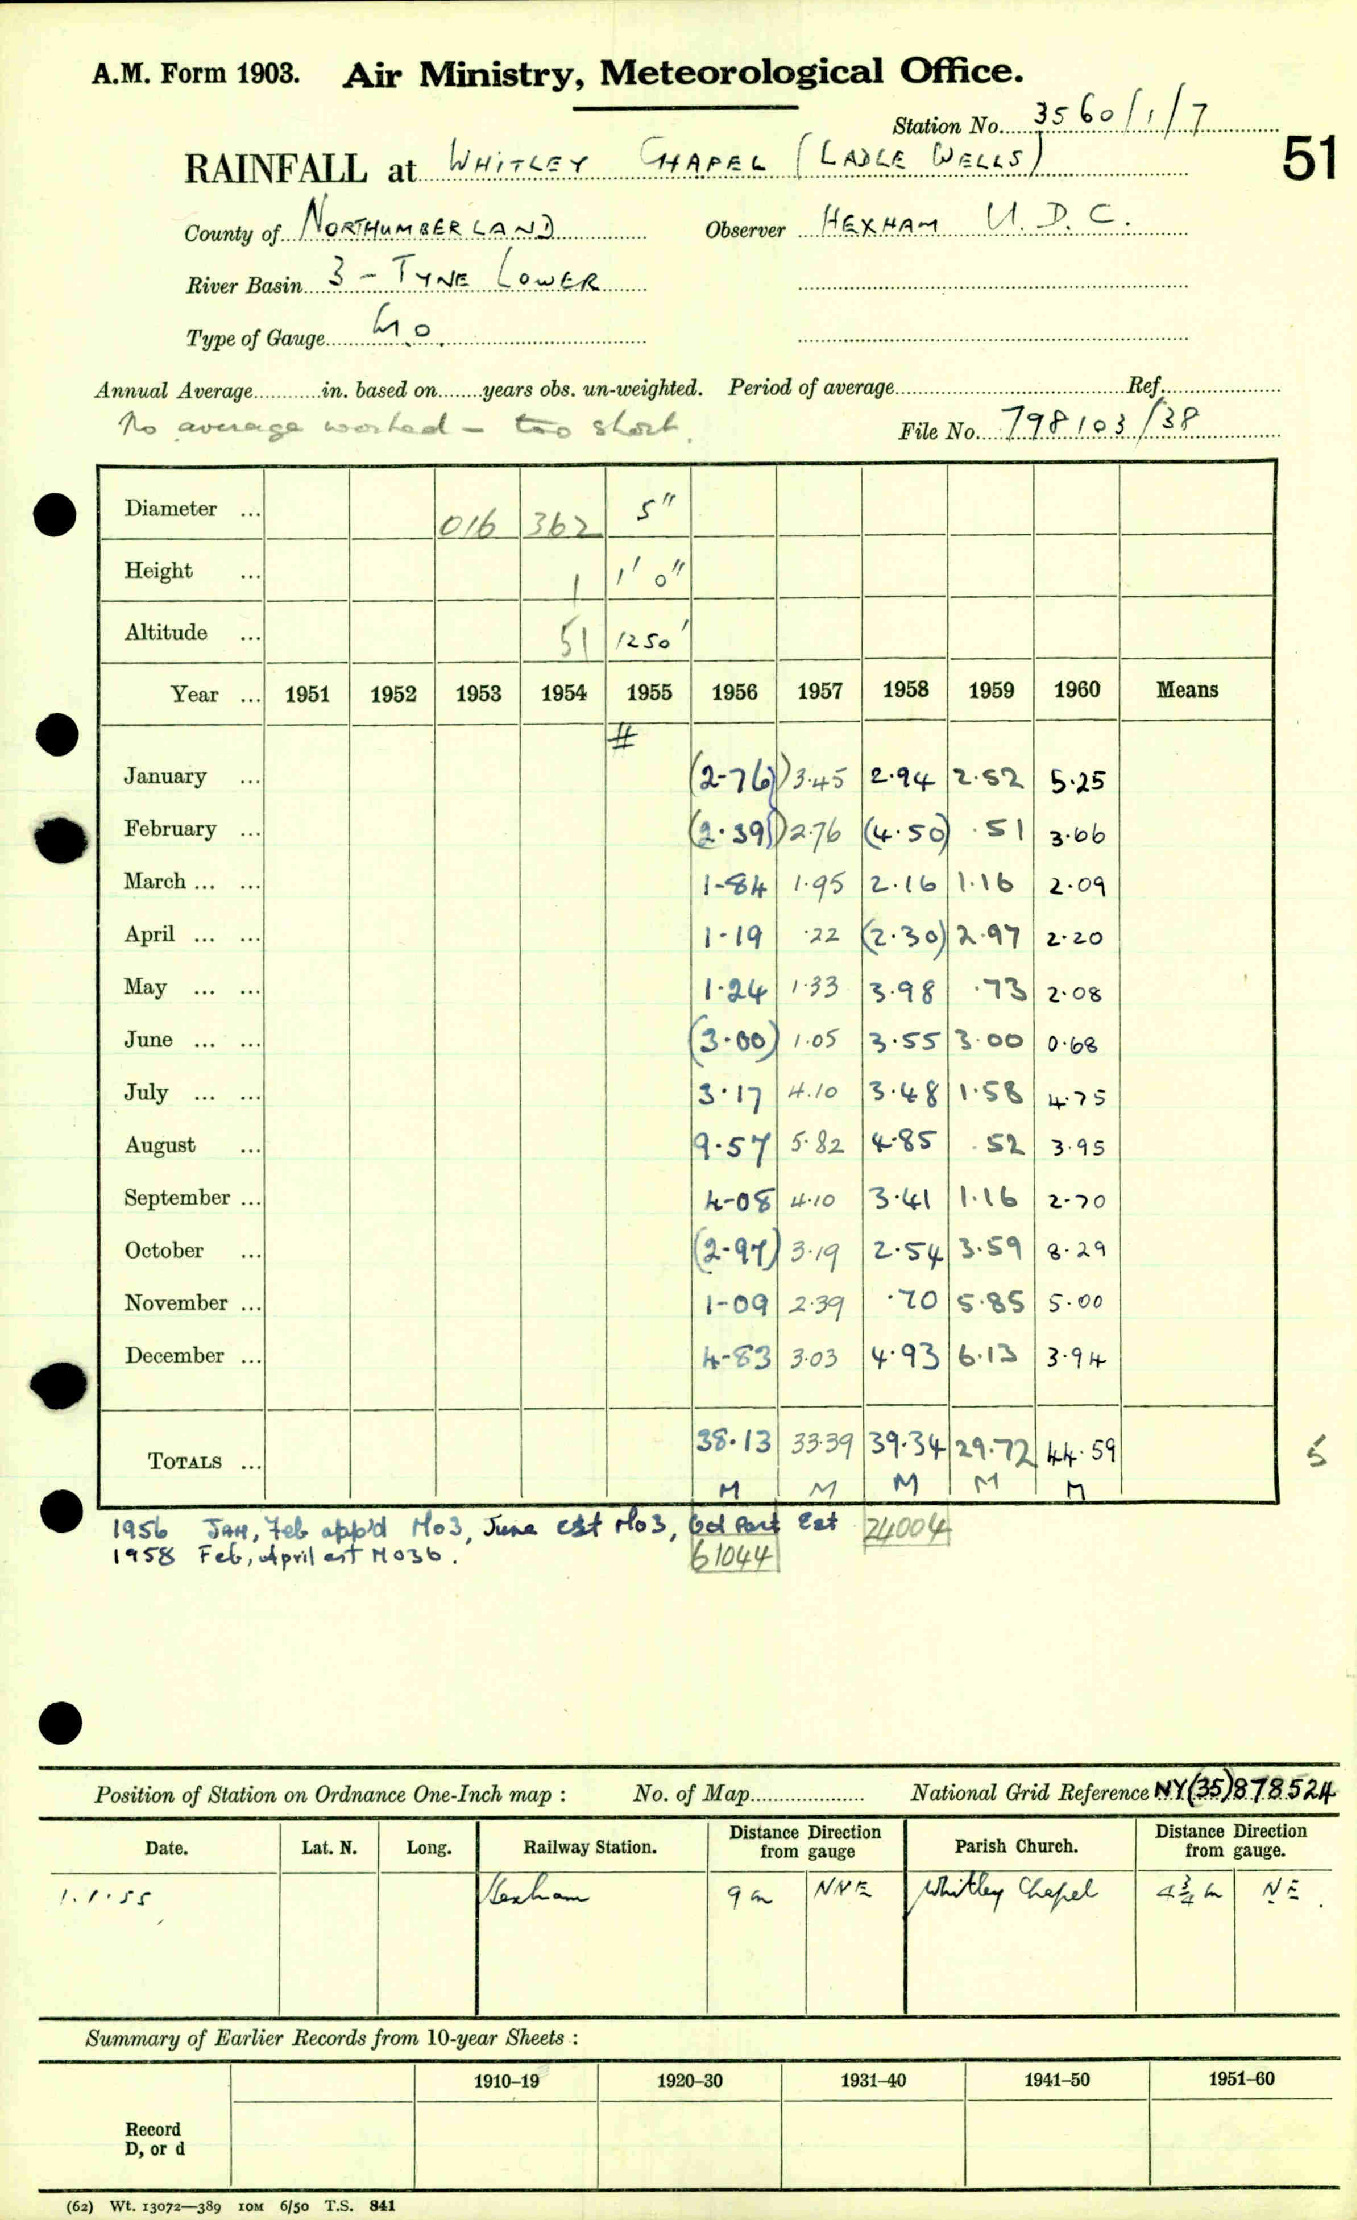 A.M. Form 1903. Air Ministry, Meteorological Office.
Station No. 3560/1/7
51
RAINFALL at WHITLEY CHAPEL (LADLE WELLS)
County of NORTHUMBERLAND Observer HEXHAM U.D.C.
River Basin 3 - TYNE LOWER
Type of Gauge M.O.
Annual Average in. based on years obs. un-weighted. Period of average Ref.
No average worked - too short. File No. 798103/38
Diameter ... 016 362 5"
Height ... 1 1' 0"
Altitude ... 51 1250'
Year ... 1951 1952 1953 1954 1955 1956 1957 1958 1959 1960 Means
#
January ... (2-76) 3.45 2.94 2.52 5.25
February ... (2.39) 2.76 (4.50) .51 3.66
March ... ... 1-84 1.95 2.16 1.16 2.09
April ... ... 1-19 .22 (2.30) 2.97 2.20
May ... ... 1.24 1.33 3.98 .73 2.08
June ... ... (3.00) 1.05 3.55 3.00 0.68
July ... ... 3.17 4.10 3.48 1.58 4.75
August ... 9.57 5.82 4.85 .52 3.95
September ... 4-08 4.10 3.41 1.16 2.70
October ... (2-97) 3.19 2.54 3.59 8.29
November ... 1-09 2.39 .70 5.85 5.00
December ... 4-83 3.03 4.93 6.13 3.94
TOTALS ... 38.13 33.39 39.34 29.72 44.59 5
M M M M M
1956 JAN, Feb app'd Mo3, June est Mo3, Oct Part Est 24004
1958 Feb, April est M03b. 61044
Position of Station on Ordnance One-Inch map : No. of Map National Grid Reference NY(35)878524
Date. Lat. N. Long. Railway Station. Distance from gauge Direction Parish Church. Distance from gauge. Direction
1.1.55 Hexham 9 m NNE Whitley Chapel 4¾ m NE
Summary of Earlier Records from 10-year Sheets :
1910–19 1920–30 1931–40 1941–50 1951–60
Record
D, or d
(62) Wt. 13072—389 10M 6/50 T.S. 841